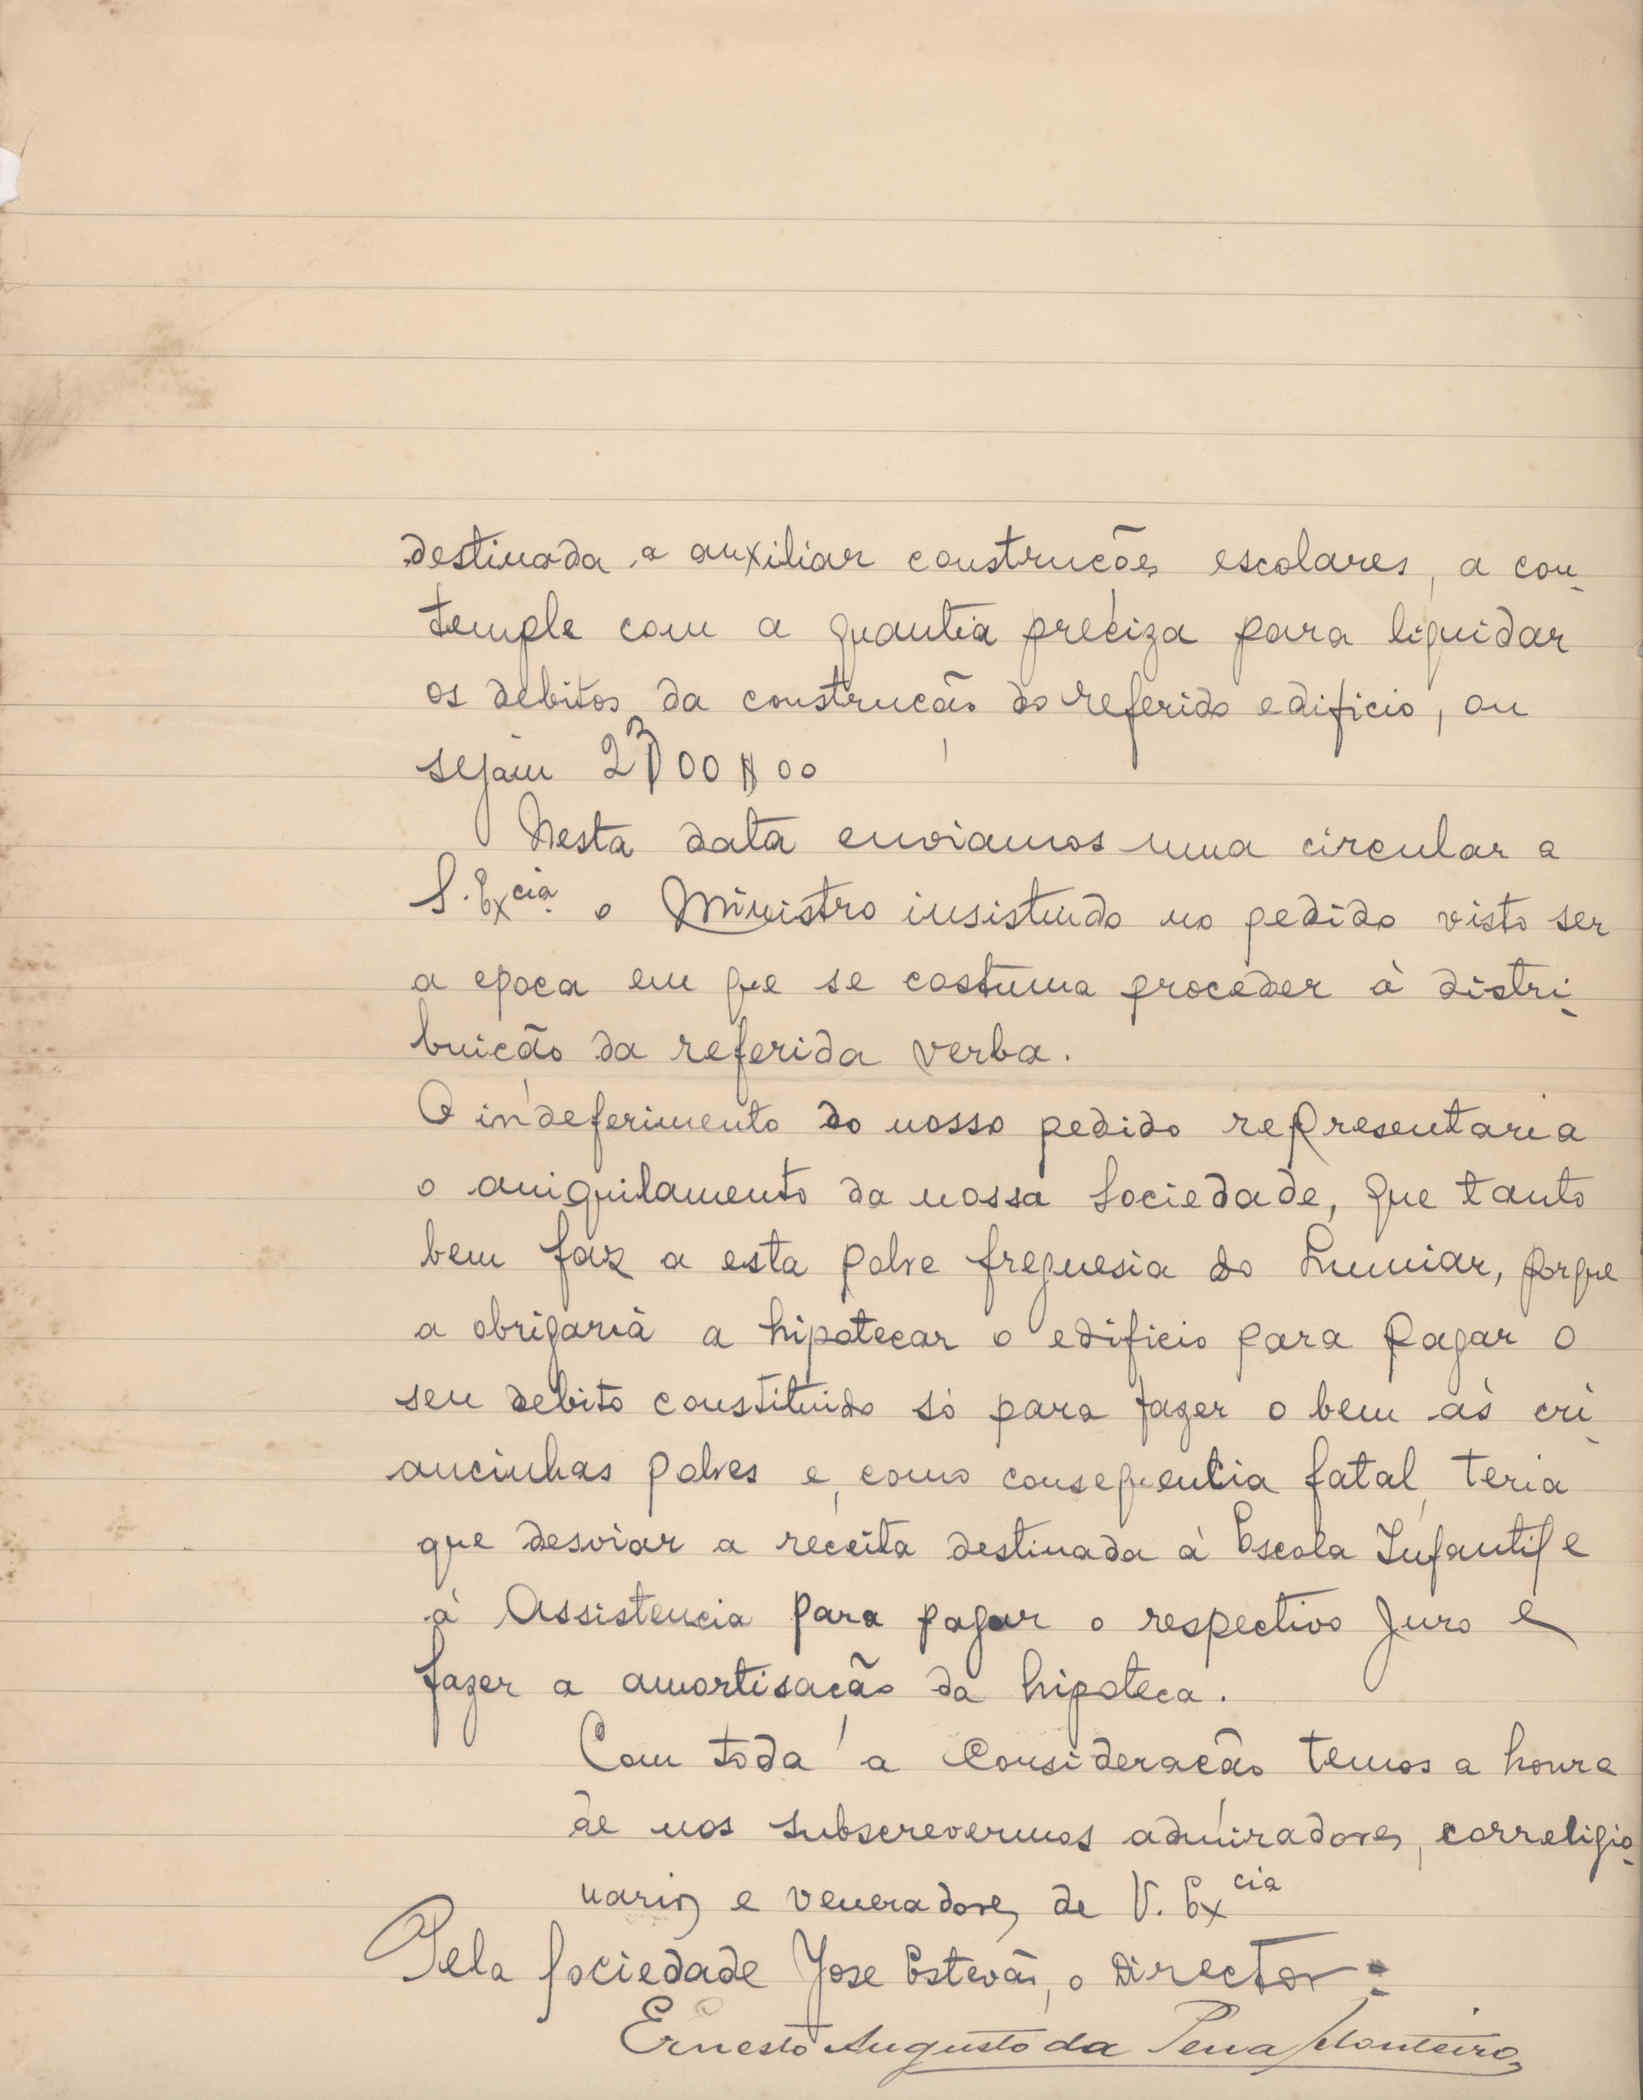 destinada a auxiliar construções escolares, a con-
temple com a quantia preciza para liquidar
os debitos da construção do referido edificio, ou
sejam
Nesta data enviamos uma circular a
S. Excia. o Ministro insistindo no pedido visto ser
a epoca em que se costuma proceder à distri-
buição da referida verba.
O indeferimento do nosso pedido representaria
o aniquilamento da nossa Sociedade, que tanto
bem faz a esta pobre freguesia do Lumiar, porque
a obrigaria a hipotecar o edificio para pagar o
seu debito constituido só para fazer o bem ás cri-
ancinhas pobres e, como consequencia fatal, teria
que desviar a receita destinada á Escola Infantil e
á Assistencia para pagar o respectivo juro e
fazer a amortisação da hipoteca.
Com toda a consideração temos a honra
de nos subscrevermos admiradores, correligio-
narios e veneradores de V. Excia
Pela Sociedade José Estevão, o Director:
Ernesto Augusto da Pena Monteiro